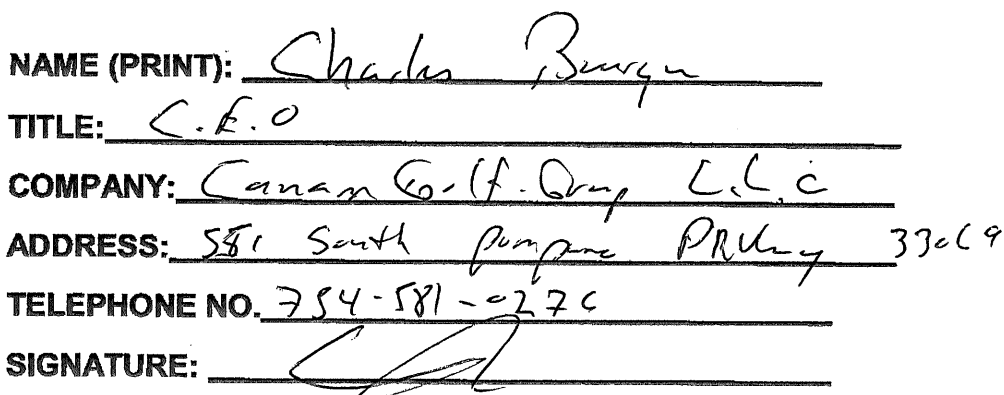 NAME (PRINT): Charles
TITLE: C.E.O
COMPANY: Canam Golf Group L.L.C
ADDRESS: 581 South pompano PRKwy 33069
TELEPHONE NO. 754-581-0276
SIGNATURE: